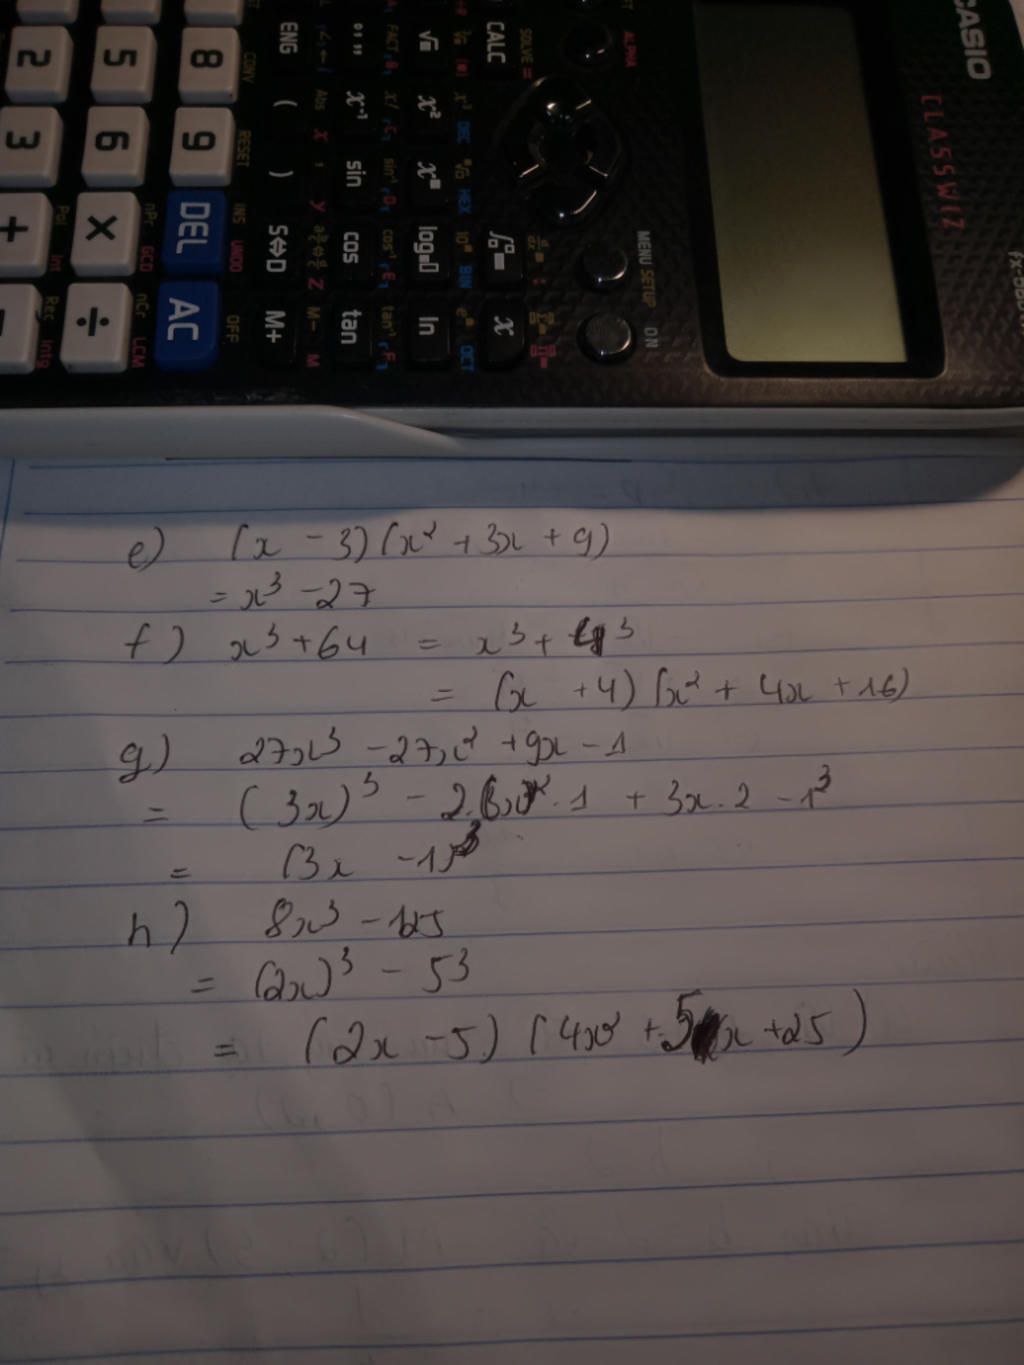 CASIO
CLASSWIZ
ALPHA
MENU SETUP ON
SOLVE =
CALC
x
√
x²
x■
log
ln
FACT
x⁻¹
sin
cos
tan
ENG
(
)
S⇔D
M+
CONV
RESET
INS UNDO
OFF
8
9
DEL
AC
5
6
×
÷
2
3
+
nPr GCD
nCr LCM
Pol Int
Rec Intg
e) (x - 3)(x² + 3x + 9)
= x³ - 27
f) x³ + 64 = x³ + 4³
= (x + 4)(x² + 4x + 16)
g) 27x³ - 27x² + 9x - 1
= (3x)³ - 2. . 1 + 3x . 2 - 1³
= (3x - 1)³
h) 8x³ - 125
= (2x)³ - 5³
= (2x - 5)(4x² + 5x + 25)